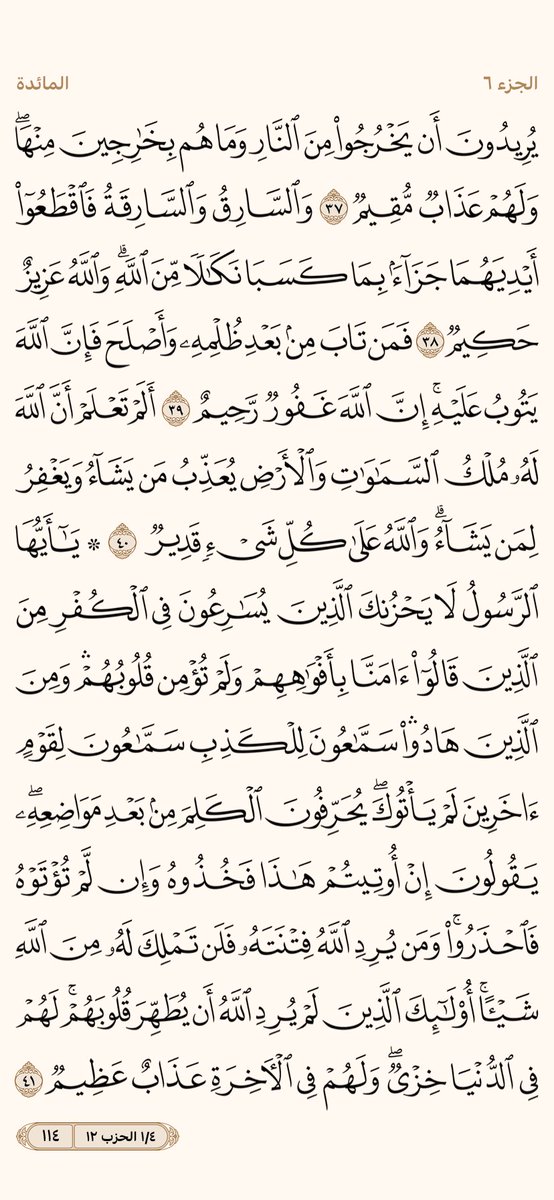 الجزء ٦
المائدة
يُرِيدُونَ أَن يَخْرُجُوا۟ مِنَ ٱلنَّارِ وَمَا هُم بِخَـٰرِجِينَ مِنْهَا ۖ
وَلَهُمْ عَذَابٌ مُّقِيمٌ ٣٧ وَٱلسَّارِقُ وَٱلسَّارِقَةُ فَٱقْطَعُوٓا۟
أَيْدِيَهُمَا جَزَآءًۢ بِمَا كَسَبَا نَكَـٰلًا مِّنَ ٱللَّهِ ۗ وَٱللَّهُ عَزِيزٌ
حَكِيمٌ ٣٨ فَمَن تَابَ مِنۢ بَعْدِ ظُلْمِهِۦ وَأَصْلَحَ فَإِنَّ ٱللَّهَ
يَتُوبُ عَلَيْهِ ۚ إِنَّ ٱللَّهَ غَفُورٌ رَّحِيمٌ ٣٩ أَلَمْ تَعْلَمْ أَنَّ ٱللَّهَ
لَهُۥ مُلْكُ ٱلسَّمَـٰوَٰتِ وَٱلْأَرْضِ يُعَذِّبُ مَن يَشَآءُ وَيَغْفِرُ
لِمَن يَشَآءُ ۗ وَٱللَّهُ عَلَىٰ كُلِّ شَىْءٍ قَدِيرٌ ٤٠ ۞ يَـٰٓأَيُّهَا
ٱلرَّسُولُ لَا يَحْزُنكَ ٱلَّذِينَ يُسَـٰرِعُونَ فِى ٱلْكُفْرِ مِنَ
ٱلَّذِينَ قَالُوٓا۟ ءَامَنَّا بِأَفْوَٰهِهِمْ وَلَمْ تُؤْمِن قُلُوبُهُمْ ۛ وَمِنَ
ٱلَّذِينَ هَادُوا۟ ۛ سَمَّـٰعُونَ لِلْكَذِبِ سَمَّـٰعُونَ لِقَوْمٍ
ءَاخَرِينَ لَمْ يَأْتُوكَ ۖ يُحَرِّفُونَ ٱلْكَلِمَ مِنۢ بَعْدِ مَوَاضِعِهِۦ ۖ
يَقُولُونَ إِنْ أُوتِيتُمْ هَـٰذَا فَخُذُوهُ وَإِن لَّمْ تُؤْتَوْهُ
فَٱحْذَرُوا۟ ۚ وَمَن يُرِدِ ٱللَّهُ فِتْنَتَهُۥ فَلَن تَمْلِكَ لَهُۥ مِنَ ٱللَّهِ
شَيْـًٔا ۚ أُو۟لَـٰٓئِكَ ٱلَّذِينَ لَمْ يُرِدِ ٱللَّهُ أَن يُطَهِّرَ قُلُوبَهُمْ ۚ لَهُمْ
فِى ٱلدُّنْيَا خِزْىٌ ۖ وَلَهُمْ فِى ٱلْـَٔاخِرَةِ عَذَابٌ عَظِيمٌ ٤١
١/٤ الحزب ١٢
١١٤